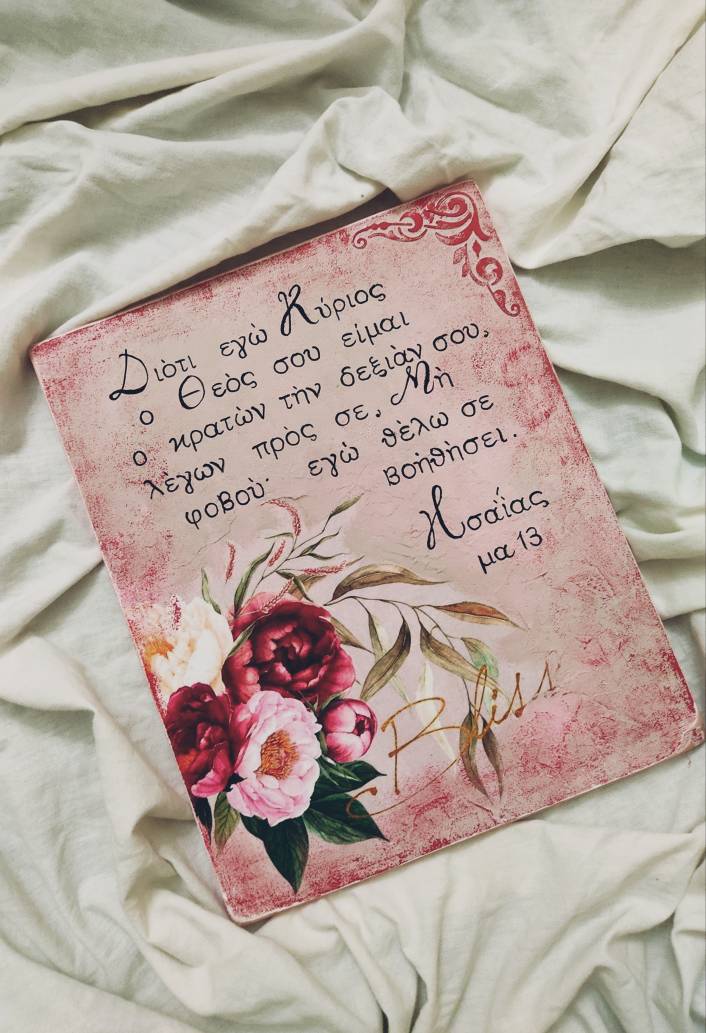 Διὸτι εγὼ Κύριος
ο Θεὸς σου είμαι
ο κρατὼν τὴν δεξιὰν σου,
λὲγων πρὸς σε, Μὴ
φοβοὺ· εγὼ θὲλω σε
βοὴθὴσει.
Ησαΐας
μα 13
Bliss